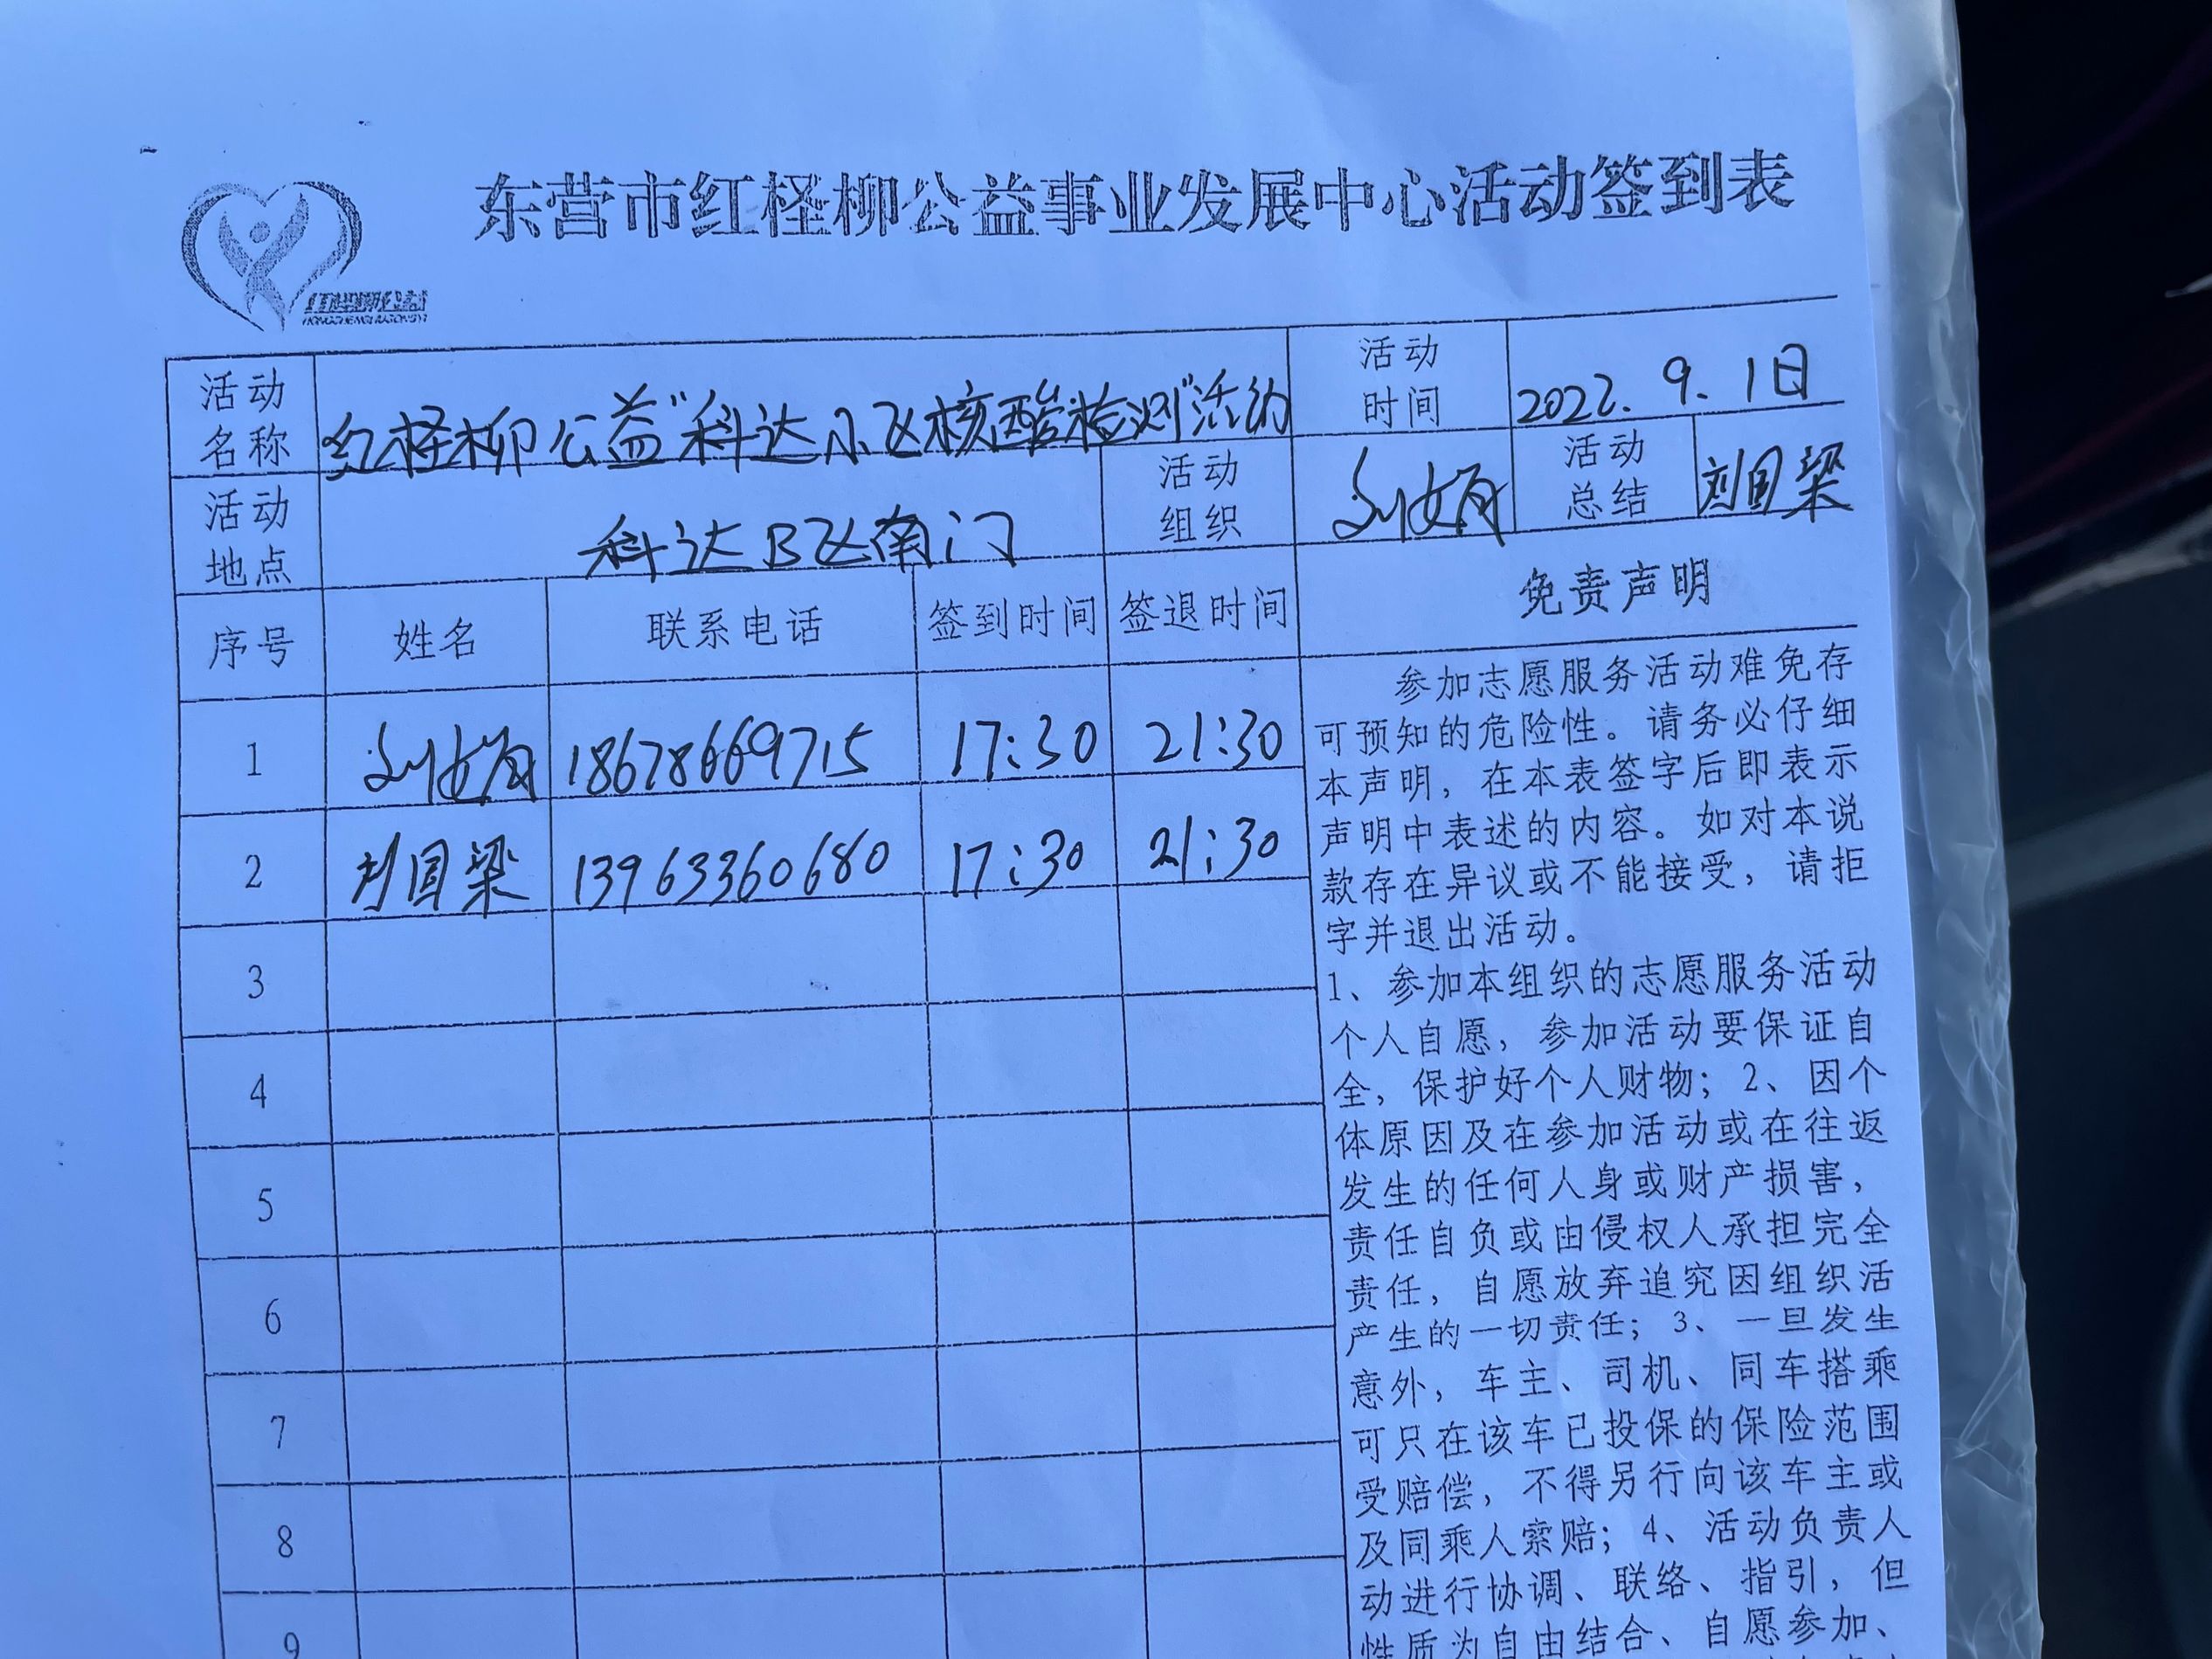 东营市红柽柳公益事业发展中心活动签到表
红柽柳公益
HONGCHENGLIUGONGYI
活动名称 红柽柳公益"科达小区核酸检测"活动 活动时间 2022.9.1日
活动地点 科达B区南门 活动组织 刘 活动总结 刘国梁
序号 姓名 联系电话 签到时间 签退时间 免责声明
1 刘 18678669715 17:30 21:30
2 刘国梁 13963360680 17:30 21:30
3
4
5
6
7
8
9
参加志愿服务活动难免存
可预知的危险性。请务必仔细
本声明，在本表签字后即表示
声明中表述的内容。如对本说
款存在异议或不能接受，请拒
字并退出活动。
1、参加本组织的志愿服务活动
个人自愿，参加活动要保证自
全，保护好个人财物；2、因个
体原因及在参加活动或在往返
发生的任何人身或财产损害，
责任自负或由侵权人承担完全
责任，自愿放弃追究因组织活
产生的一切责任；3、一旦发生
意外，车主、司机、同车搭乘
可只在该车已投保的保险范围
受赔偿，不得另行向该车主或
及同乘人索赔；4、活动负责人
动进行协调、联络、指引，但
性质为自由结合、自愿参加、